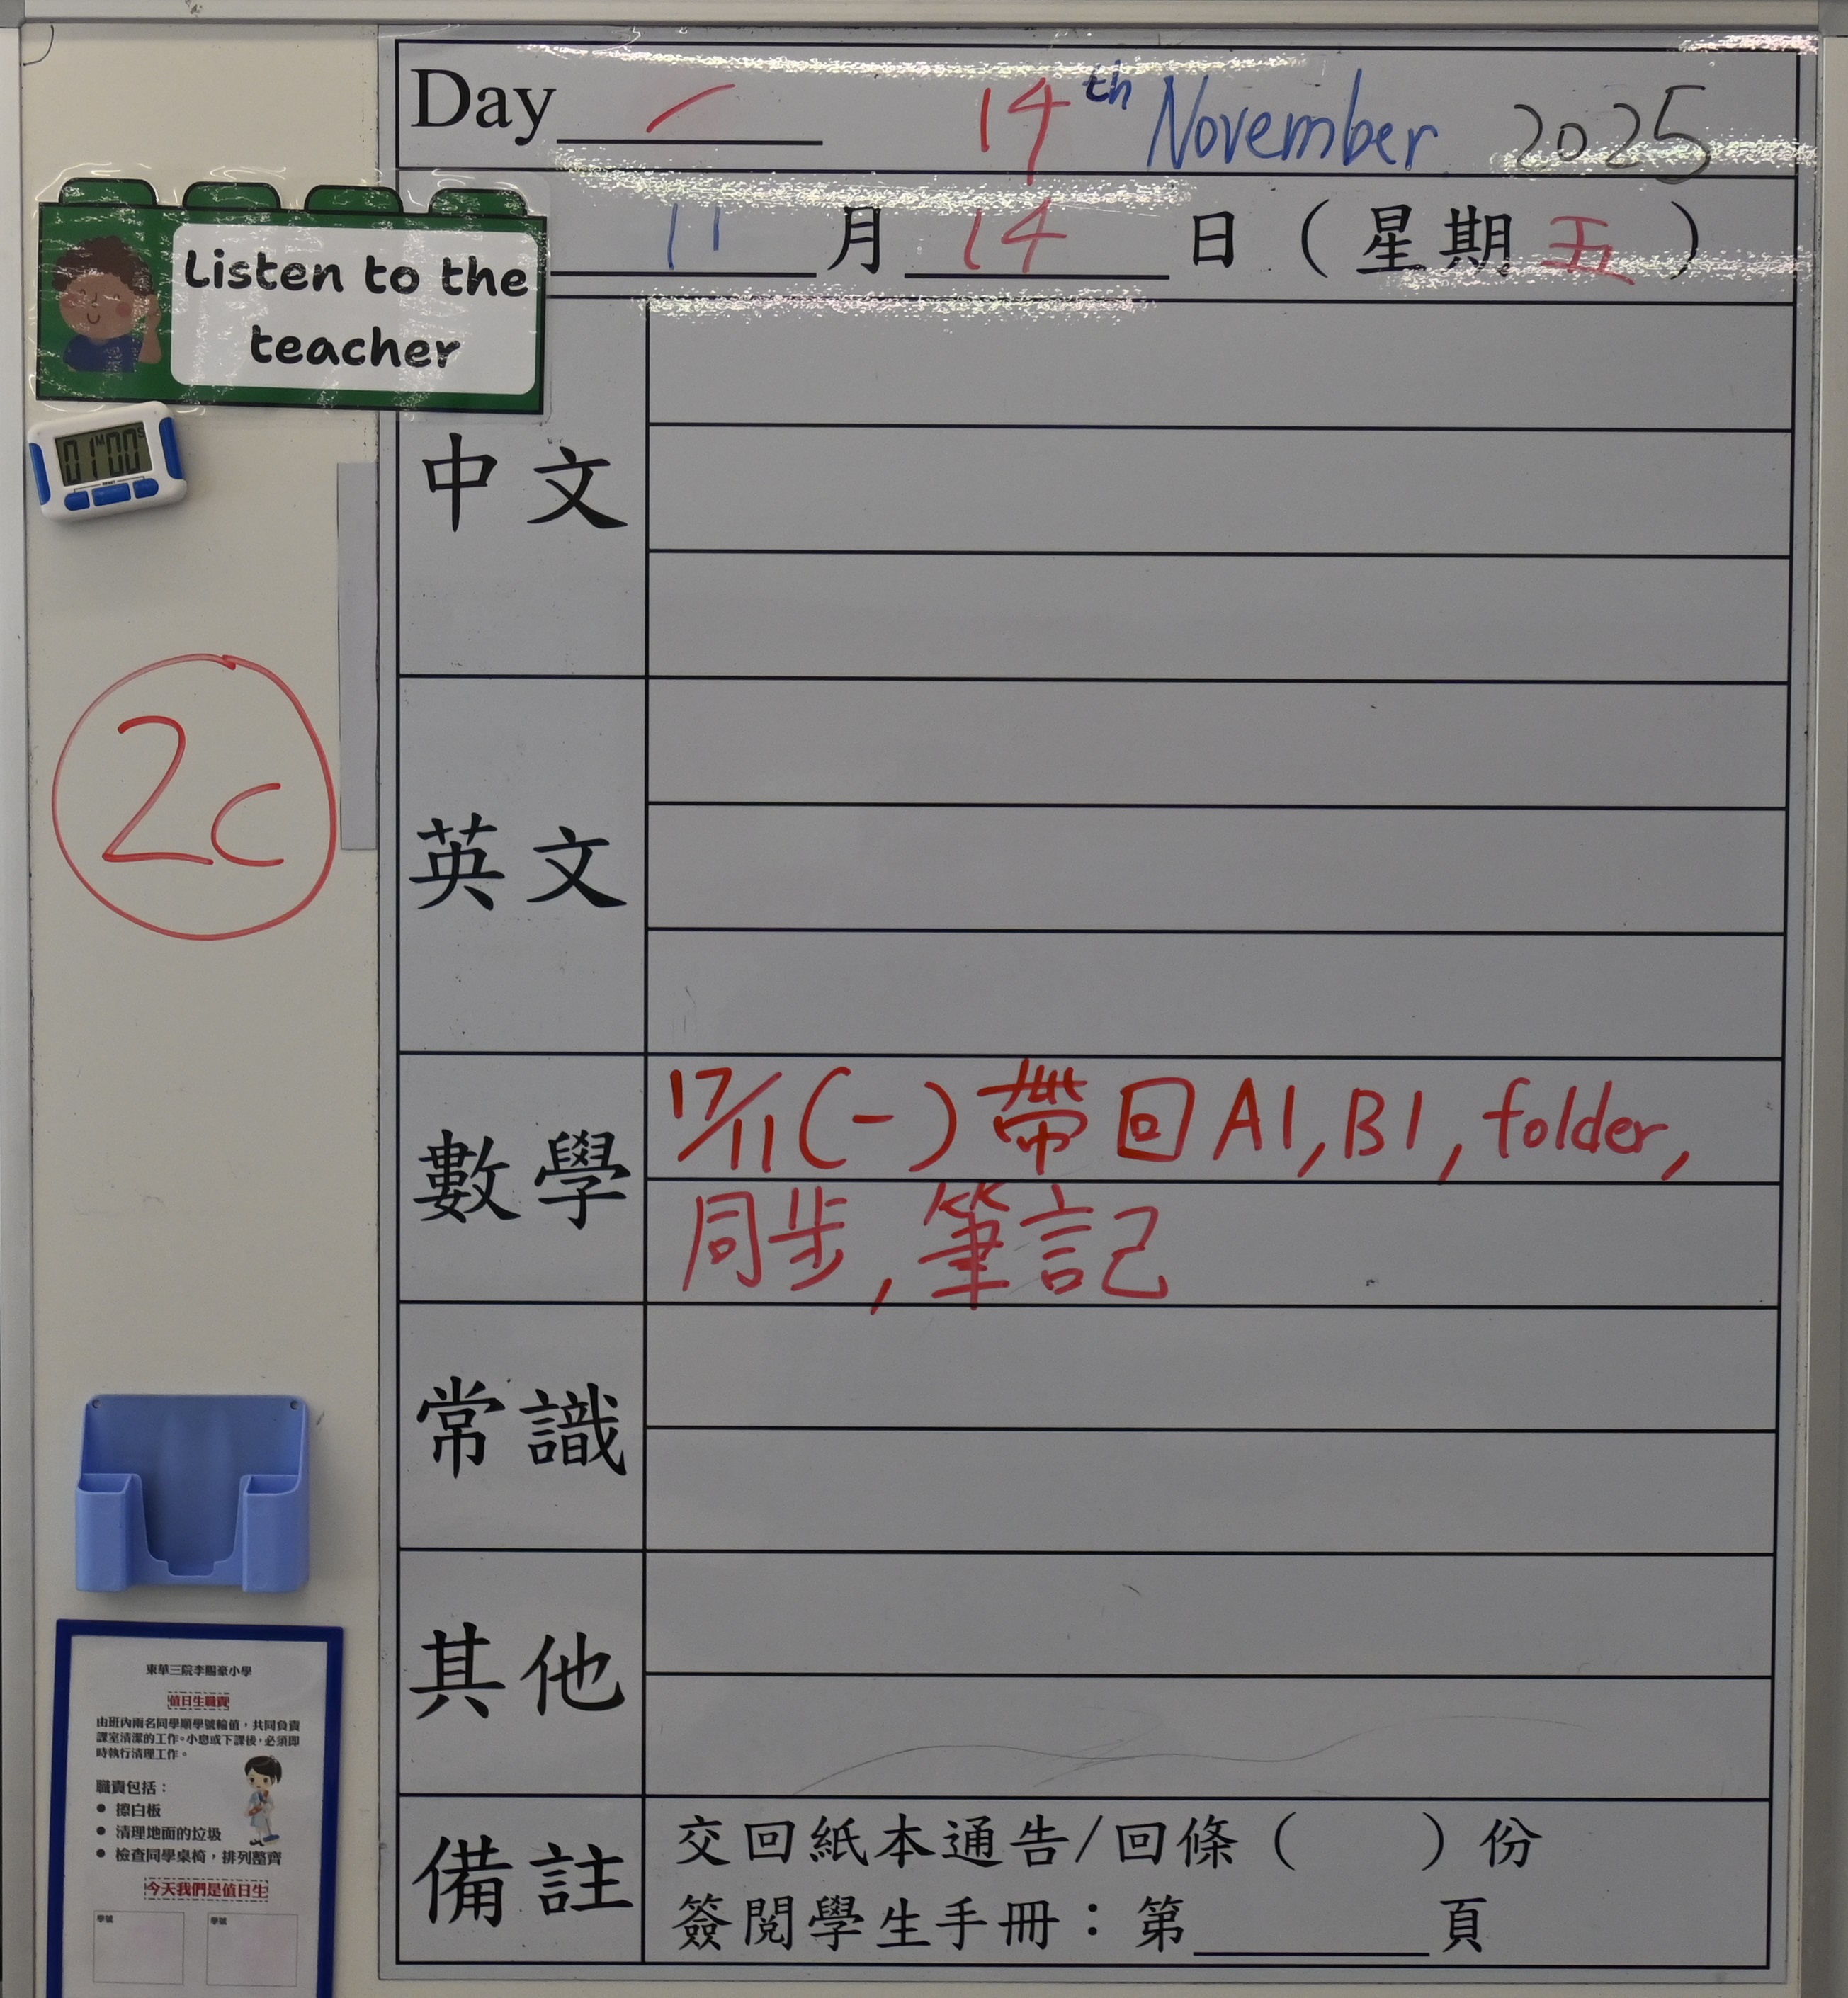 Day / 14th November 2025
11 月 14 日 (星期五)
Listen to the
teacher
01M00S
中文
2C
英文
數學
17/11 (一) 帶回 A1, B1, folder,
同步, 筆記
常識
其他
備註
交回紙本通告/回條 ( ) 份
簽閱學生手冊：第____頁
東華三院李賜豪小學
值日生職責
由班內兩名同學順學號輪值，共同負責
課室清潔的工作。小息或下課後，必須即
時執行清理工作。
職責包括：
● 擦白板
● 清理地面的垃圾
● 檢查同學桌椅，排列整齊
今天我們是值日生
學號 學號